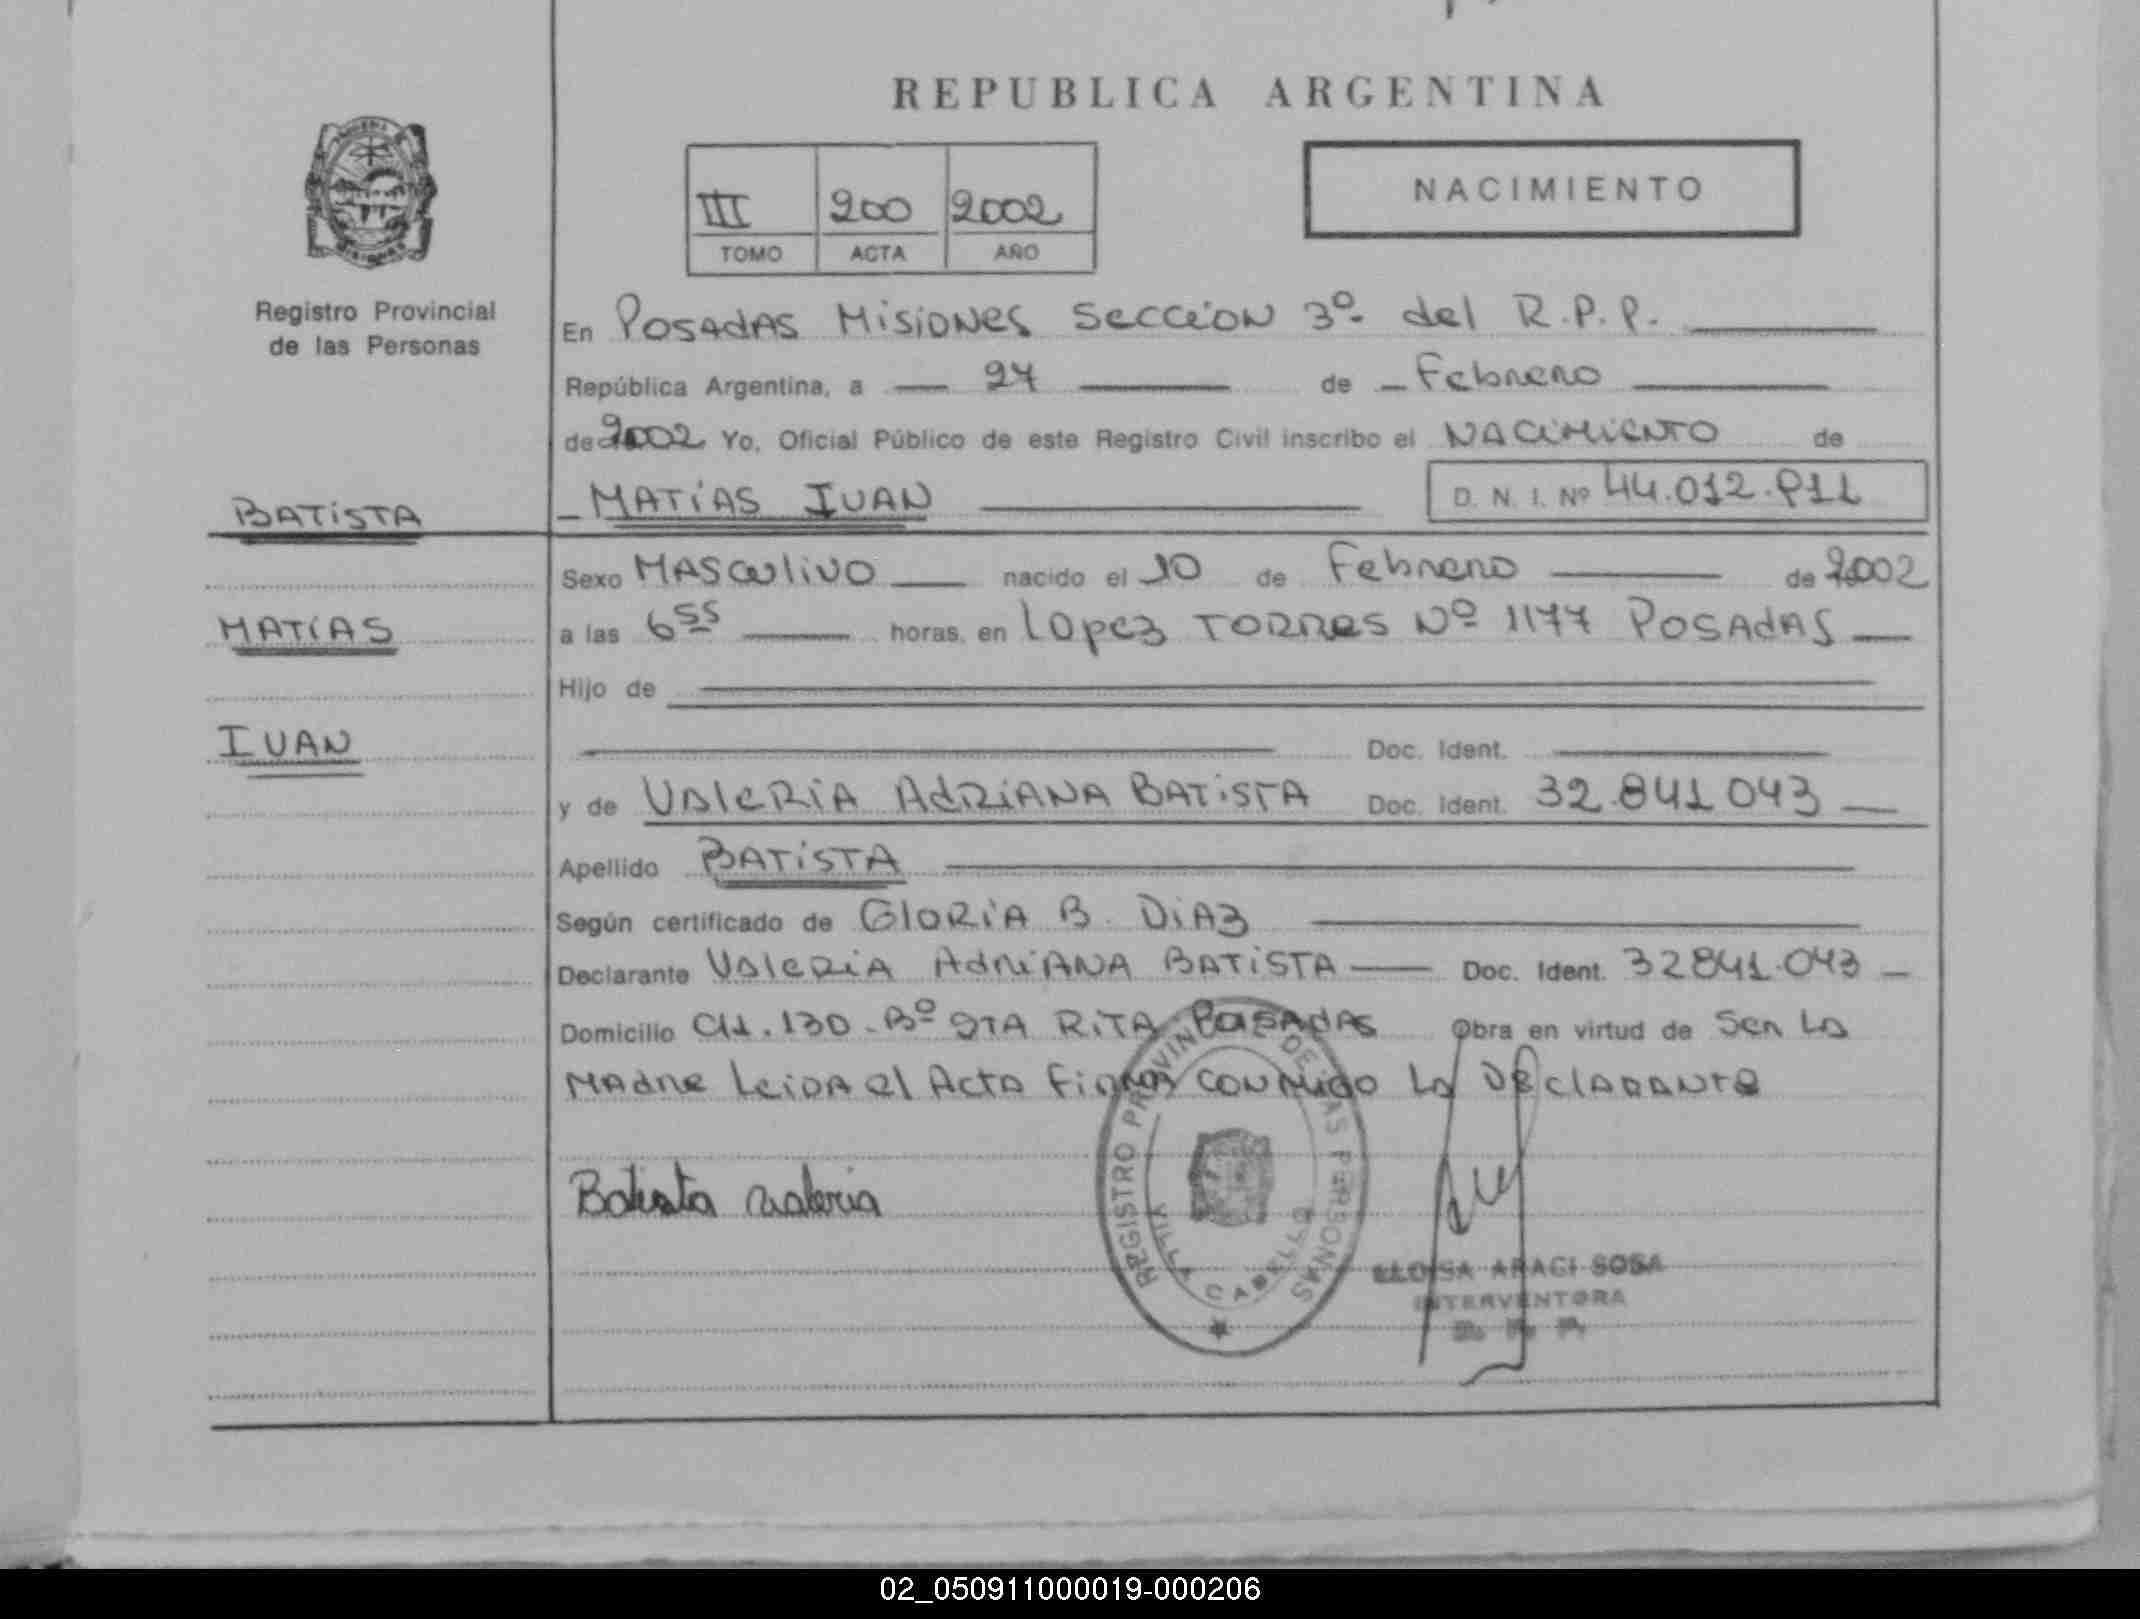 REPUBLICA ARGENTINA
III 200 2002
TOMO ACTA AÑO
NACIMIENTO
Registro Provincial
de las Personas
En POSADAS MISIONES SECCION 3º del R.P.P.
República Argentina, a 27 de Febrero
de 2002 Yo, Oficial Público de este Registro Civil inscribo el NACIMIENTO de
BATISTA
MATIAS IVAN D. N. I. Nº 44.012.911
Sexo MASCULINO nacido el 10 de Febrero de 2002
MATIAS
a las 6 55 horas, en LOPEZ TORRES Nº 1177 POSADAS
Hijo de
IVAN
Doc. Ident.
y de VALERIA ADRIANA BATISTA Doc. Ident. 32.841 043
Apellido BATISTA
Según certificado de GLORIA B. DIAZ
Declarante VALERIA ADRIANA BATISTA Doc. Ident. 32841.043
Domicilio CH.130-Bº STA RITA POSADAS Obra en virtud de Ser LA
MADRE LEIDA el ACTA FIRMA CONMIGO LA DECLARANTE
Batista Valeria
REGISTRO PROVINCIAL DE LAS PERSONAS
VILLA CABELLO
ELOISA ARACI SOSA
INTERVENTORA
R. P. P.
02_050911000019-000206